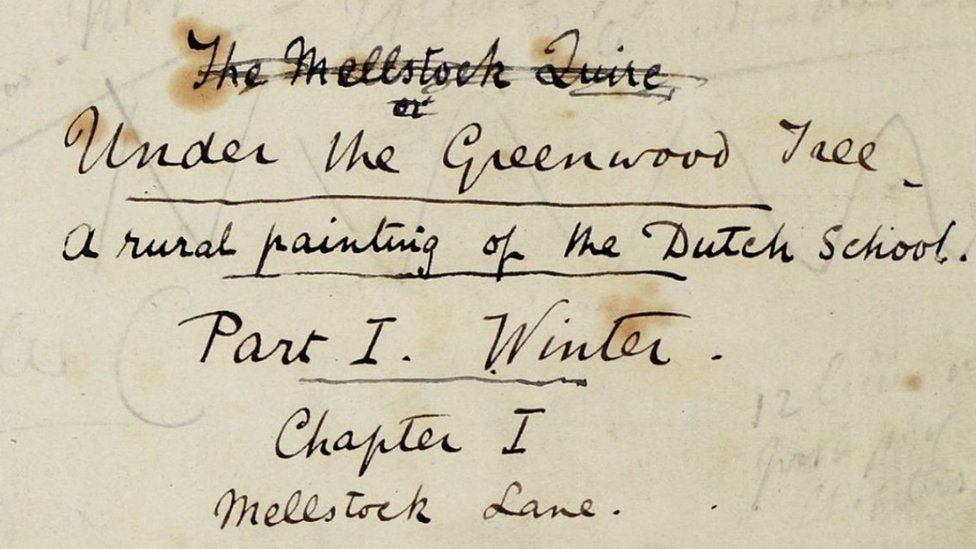 The Mellstock Quire
or
Under the Greenwood Tree.
A rural painting of the Dutch School.
Part I. Winter.
Chapter I
Mellstock Lane.
12